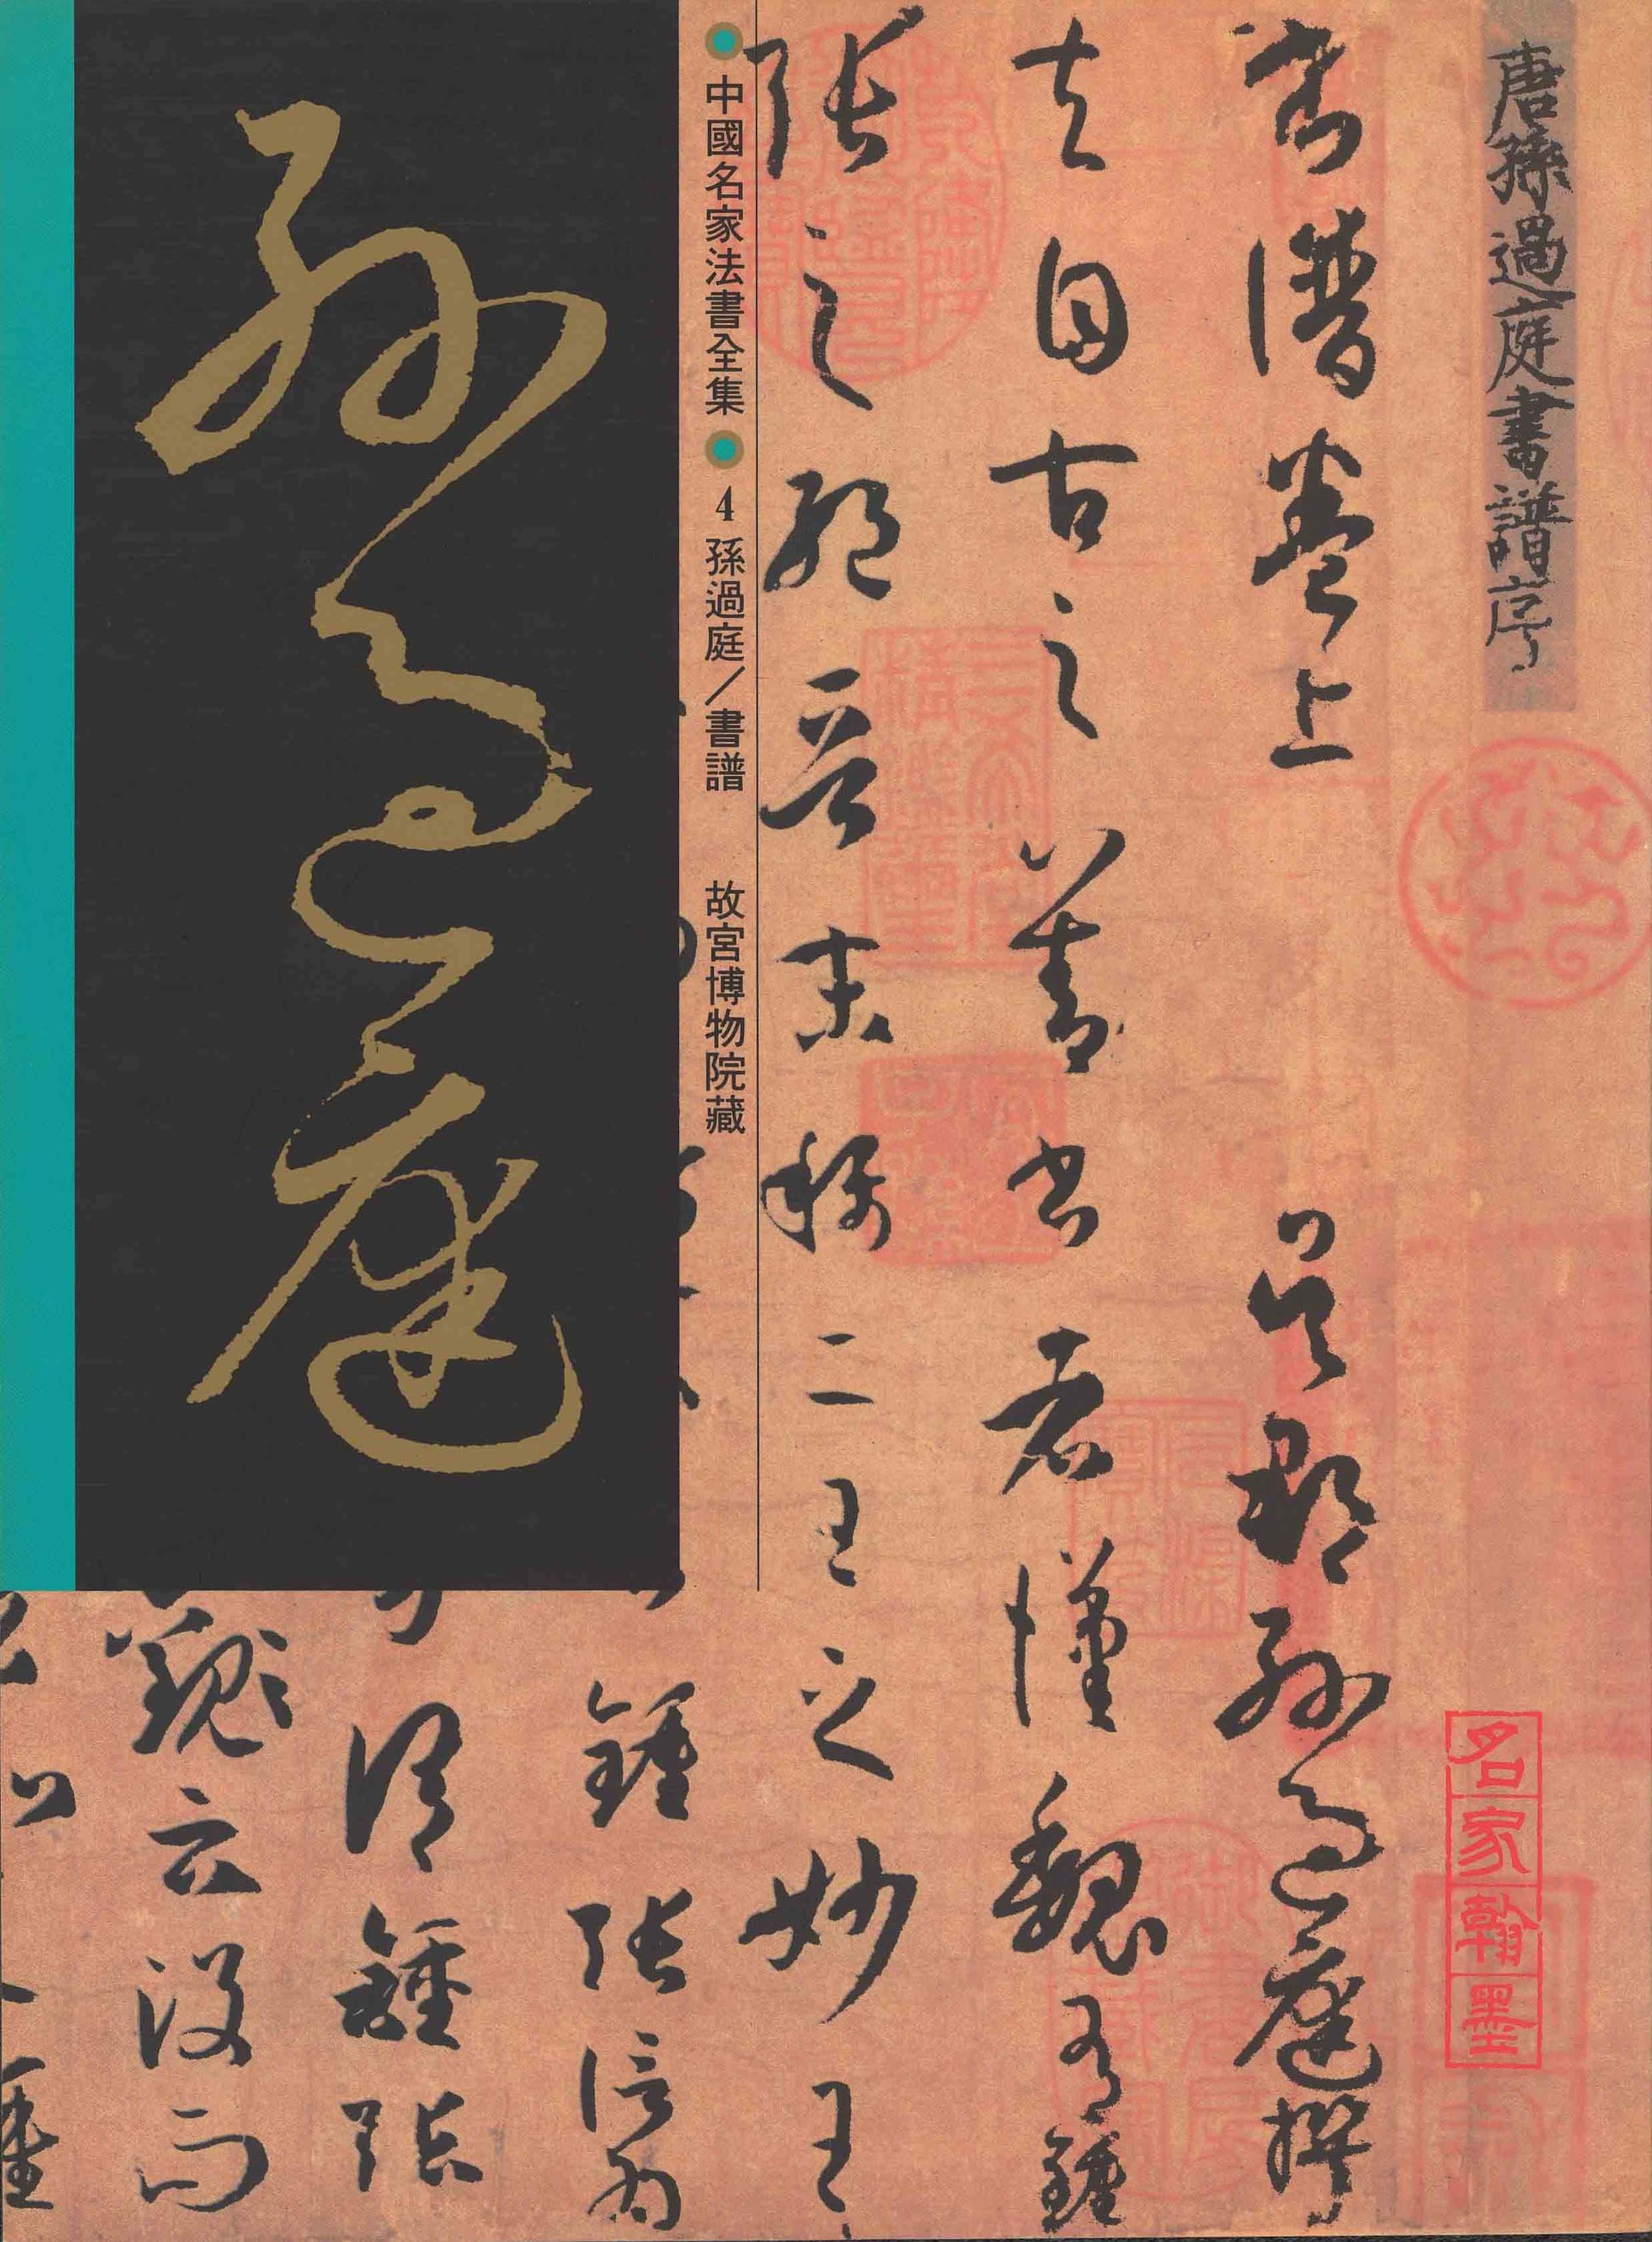 唐孫過庭書譜序
書譜卷上 吳郡孫過庭撰
夫自古之善書者漢魏有鍾
張之絕晉末稱二王之妙王
中國名家法書全集
4 孫過庭/書譜 故宮博物院藏
孫過庭
鍾張信為
謂鍾張
云沒而
名家翰墨